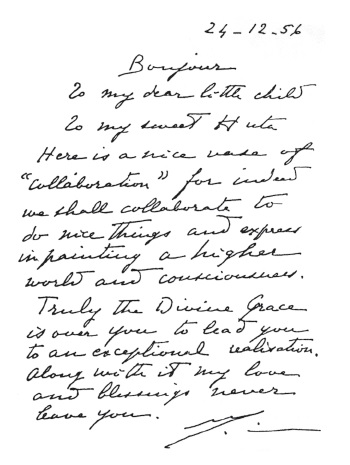 24-12-56
Bonjour
To my dear little child
To my sweet Huta
Here is a nice vase of
"collaboration" for indeed
we shall collaborate to
do nice things and express
in painting a higher
world and consciousness.
Truly the Divine Grace
is over you to lead you
to an exceptional realisation.
Along with it my love
and blessings never
leave you.